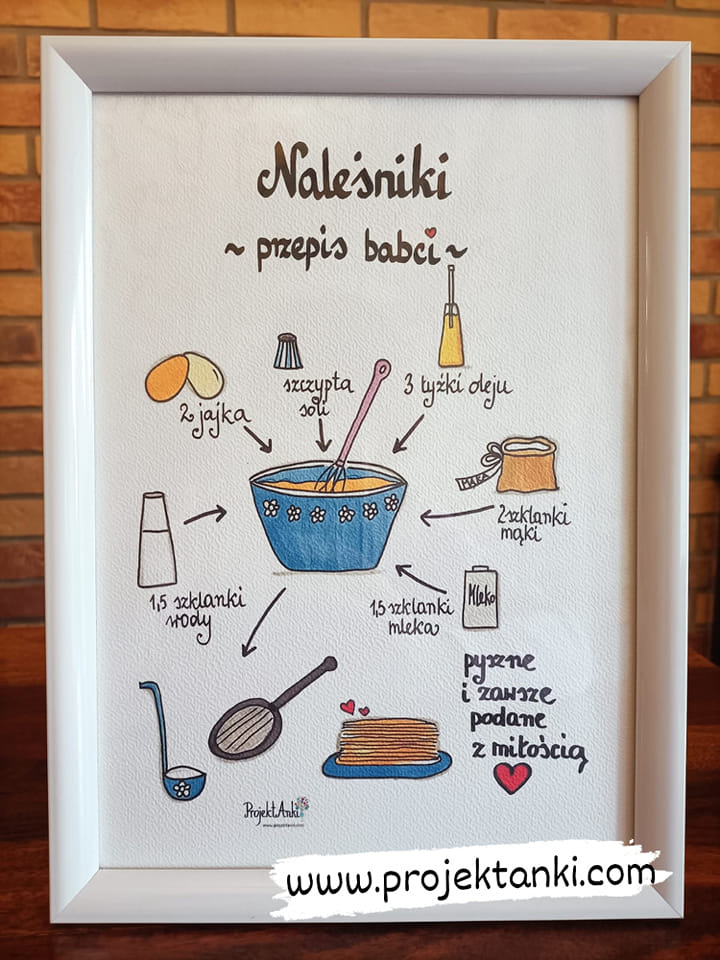 Naleśniki
~ przepis babci ~
2 jajka
szczypta
soli
3 łyżki oleju
MĄKA
2 szklanki
mąki
1,5 szklanki
wody
1,5 szklanki
mleka
Mleko
pyszne
i zawsze
podane
z miłością
ProjektAnki
www.projektanki.com
www.projektanki.com